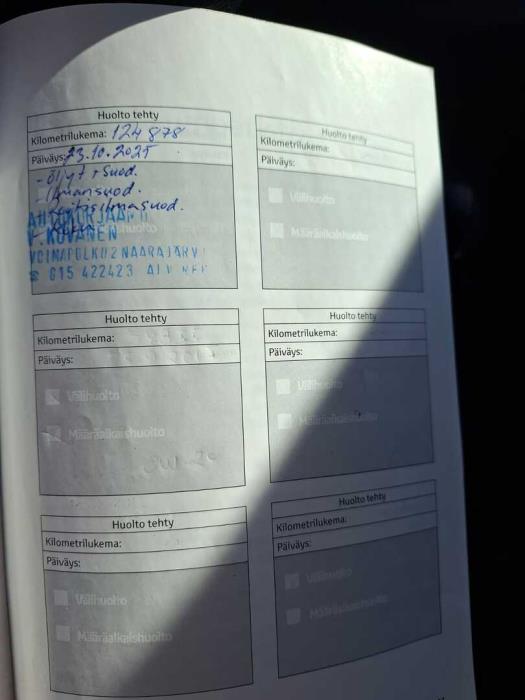 Huolto tehty
Kilometrilukema: 124 878
Päiväys: 23.10.2025
- öljyt + Suod.
- ilmansuod.
- Raitisilmasuod.
AUTOKORJAAMO
V. KOVANEN
VOIMAPOLKU 2 NAARAJÄRVI
☎ 015 422423
Huolto tehty
Kilometrilukema:
Päiväys:
Välihuolto
Määräaikaishuolto
Huolto tehty
Kilometrilukema:
Päiväys:
Välihuolto
Määräaikaishuolto
Huolto tehty
Kilometrilukema:
Päiväys:
Välihuolto
Määräaikaishuolto
Huolto tehty
Kilometrilukema:
Päiväys:
Välihuolto
Määräaikaishuolto
Huolto tehty
Kilometrilukema:
Päiväys:
Välihuolto
Määräaikaishuolto